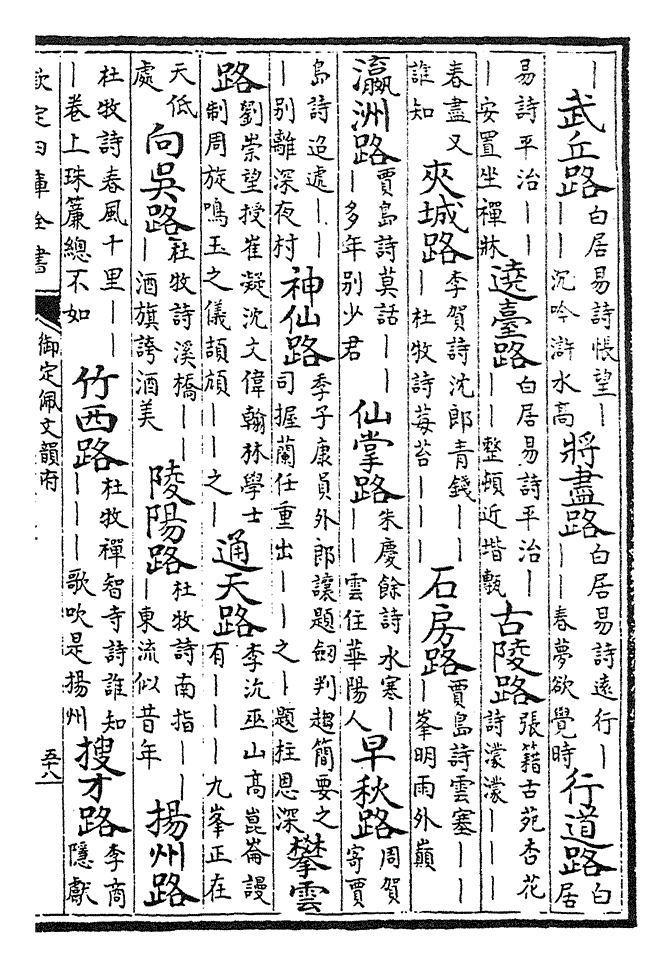 丨武丘路 白居易詩悵望丨丨丨沉吟滸水高 將盡路 白居易詩遠行丨丨丨春夢欲覺時 行道路 白居
易詩平治丨丨丨安置坐禪牀 遶臺路 白居易詩平治丨丨丨整頓近堦甎 古陵路 張籍古苑杏花詩濛濛丨丨丨
春盡又誰知 夾城路 李賀詩沈郎青錢丨丨丨杜牧詩莓苔丨丨丨 石房路 賈島詩雲塞丨丨丨峯明雨外巔
瀛洲路 賈島詩莫話丨丨丨多年别少君 仙掌路 朱慶餘詩水寒丨丨丨雲住華陽人 早秋路 周賀寄賈
島詩迢遞丨丨丨别離深夜村 神仙路 李子康員外郎讓題劒判趨簡要之司握蘭任重出丨丨之丨題柱恩深 攀雲
路 劉崇望授崔凝沈文偉翰林學士制周旋鳴玉之儀頡頏丨丨之丨 通天路 李沇巫山高崑崙謾有丨丨丨九峯正在
天低處 向吳路 杜牧詩溪橋丨丨丨酒旗誇酒美 陵陽路 杜牧詩南指丨丨丨東流似昔年 揚州路
杜牧詩春風十里丨丨丨卷上珠簾總不如 竹西路 杜牧禪智寺詩誰知丨丨丨歌吹是揚州 搜才路 李商隱獻
欽定四庫全書 御定佩文韻府 五八